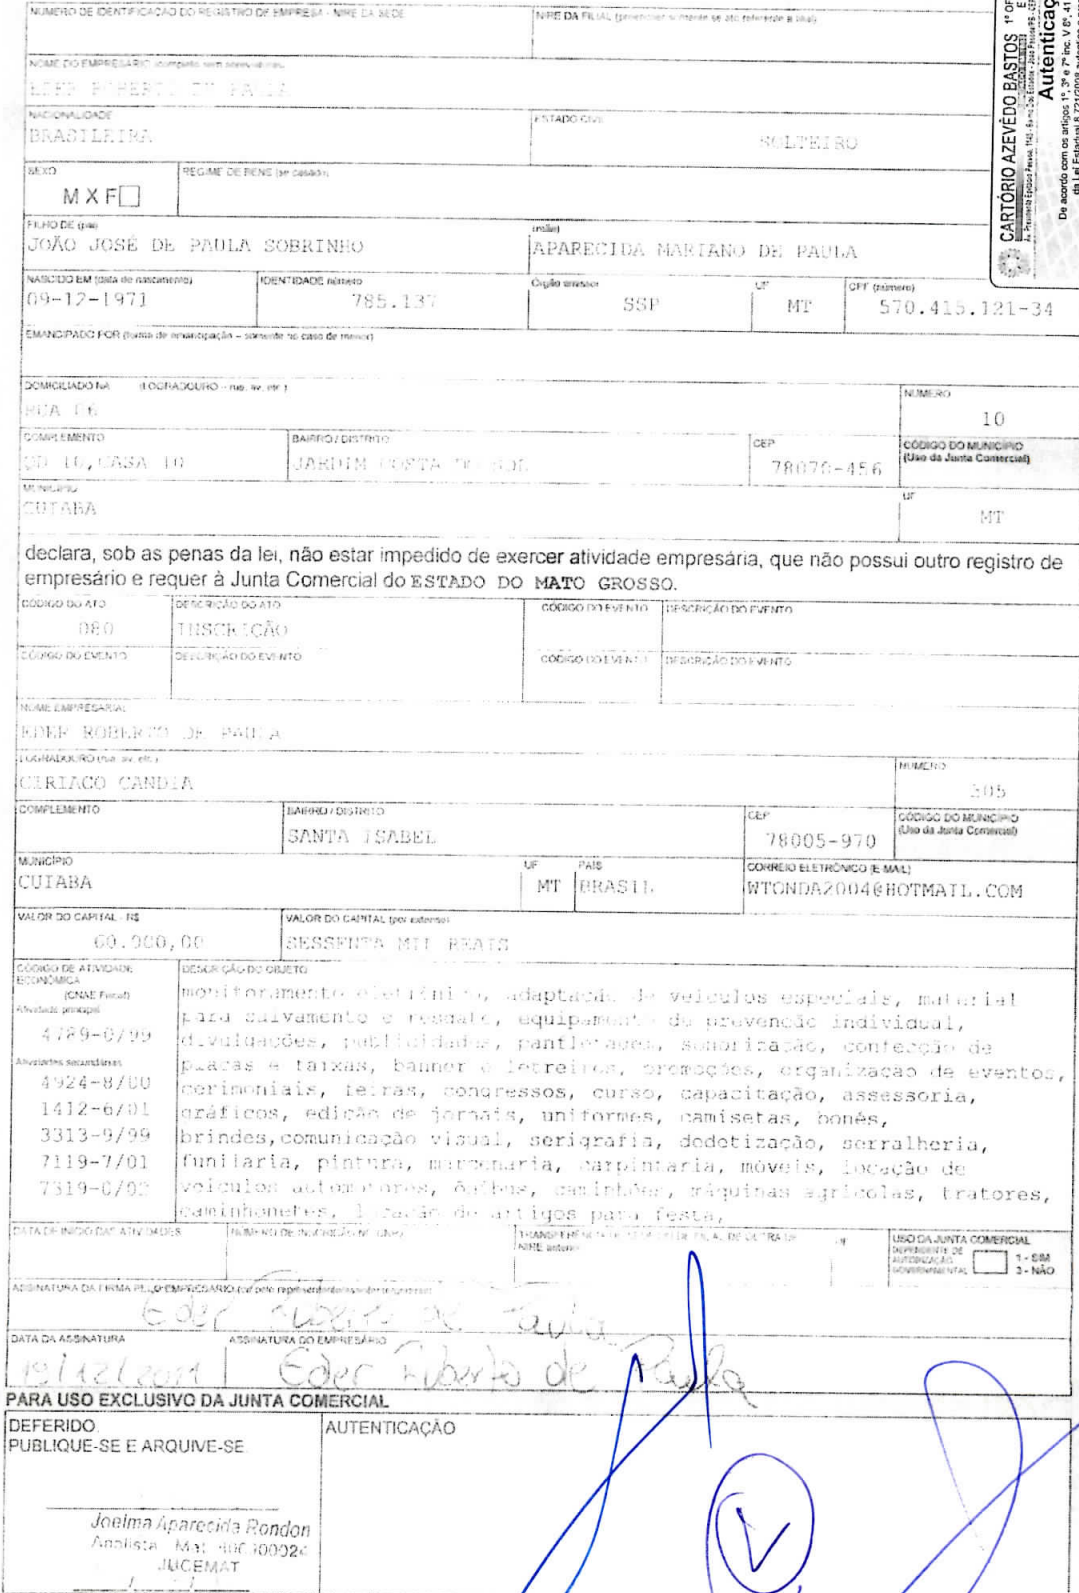 NÚMERO DE IDENTIFICAÇÃO DO REGISTRO DE EMPRESA - NIRE DA SEDE
NIRE DA FILIAL (preencher somente se ato referente a filial)
NOME DO EMPRESÁRIO (completo sem abreviaturas)
EDER ROBERTO DE PAULA
NACIONALIDADE
BRASILEIRA
ESTADO CIVIL
SOLTEIRO
SEXO
M X F
REGIME DE BENS (se casado)
FILHO DE (pai)
JOÃO JOSÉ DE PAULA SOBRINHO
(mãe)
APARECIDA MARIANO DE PAULA
NASCIDO EM (data de nascimento)
09-12-1971
IDENTIDADE número
785.137
Órgão emissor
SSP
UF
MT
CPF (número)
570.415.121-34
EMANCIPADO POR (forma de emancipação – somente no caso de menor)
DOMICILIADO NA (LOGRADOURO – rua, av, etc.)
RUA 06
NÚMERO
10
COMPLEMENTO
QD 10, CASA 10
BAIRRO / DISTRITO
JARDIM COSTA DO SOL
CEP
78070-456
CÓDIGO DO MUNICÍPIO
(Uso da Junta Comercial)
MUNICÍPIO
CUIABA
UF
MT
declara, sob as penas da lei, não estar impedido de exercer atividade empresária, que não possui outro registro de
empresário e requer à Junta Comercial do ESTADO DO MATO GROSSO.
CÓDIGO DO ATO
080
DESCRIÇÃO DO ATO
INSCRIÇÃO
CÓDIGO DO EVENTO
DESCRIÇÃO DO EVENTO
CÓDIGO DO EVENTO
DESCRIÇÃO DO EVENTO
CÓDIGO DO EVENTO
DESCRIÇÃO DO EVENTO
NOME EMPRESARIAL
EDER ROBERTO DE PAULA
LOGRADOURO (rua, av, etc.)
CIRIACO CANDIA
NÚMERO
305
COMPLEMENTO
BAIRRO / DISTRITO
SANTA ISABEL
CEP
78005-970
CÓDIGO DO MUNICÍPIO
(Uso da Junta Comercial)
MUNICÍPIO
CUIABA
UF
MT
PAÍS
BRASIL
CORREIO ELETRÔNICO (E-MAIL)
WTONDA2004@HOTMAIL.COM
VALOR DO CAPITAL - R$
60.000,00
VALOR DO CAPITAL (por extenso)
SESSENTA MIL REAIS
CÓDIGO DE ATIVIDADE
ECONÔMICA
(CNAE Fiscal)
Atividade principal
4789-0/99
Atividades secundárias
4924-8/00
1412-6/01
3313-9/99
7119-7/01
7319-0/02
DESCRIÇÃO DO OBJETO
monitoramento eletrônico, adaptação de veiculos especiais, material
para salvamento e resgate, equipamento de prevenção individual,
divulgações, publicidades, panfletagem, sonorização, confecção de
placas e faixas, banner e letreiros, promoções, organização de eventos,
cerimoniais, feiras, congressos, curso, capacitação, assessoria,
gráficos, edição de jornais, uniformes, camisetas, bonés,
brindes, comunicação visual, serigrafia, dedetização, serralheria,
funilaria, pintura, marcenaria, carpintaria, móveis, locação de
veiculos automotores, ônibus, caminhões, máquinas agrícolas, tratores,
caminhonetes, locação de artigos para festa,
DATA DE INÍCIO DAS ATIVIDADES
NÚMERO DE INSCRIÇÃO NO CNPJ
TRANSFERÊNCIA DE SEDE OU DE FILIAL DE OUTRA UF
NIRE anterior
UF
USO DA JUNTA COMERCIAL
DEPENDENTE DE
AUTORIZAÇÃO
GOVERNAMENTAL
1 - SIM
3 - NÃO
ASSINATURA DA FIRMA PELO EMPRESÁRIO (ou pelo representante/assistente/gerente)
Eder Roberto de Paula
DATA DA ASSINATURA
19/12/2011
ASSINATURA DO EMPRESÁRIO
Eder Roberto de Paula
PARA USO EXCLUSIVO DA JUNTA COMERCIAL
DEFERIDO.
PUBLIQUE-SE E ARQUIVE-SE
AUTENTICAÇÃO
Joelma Aparecida Rondon
Analista Mat.
JUCEMAT
CARTÓRIO AZEVÊDO BASTOS
Av. Presidente Epitácio Pessoa, 1145 - Bairro Dos Estados - João Pessoa/PB
De acordo com os artigos 1º, 3º e 7º inc. V 8º, 41
da Lei Estadual 8.721/2008